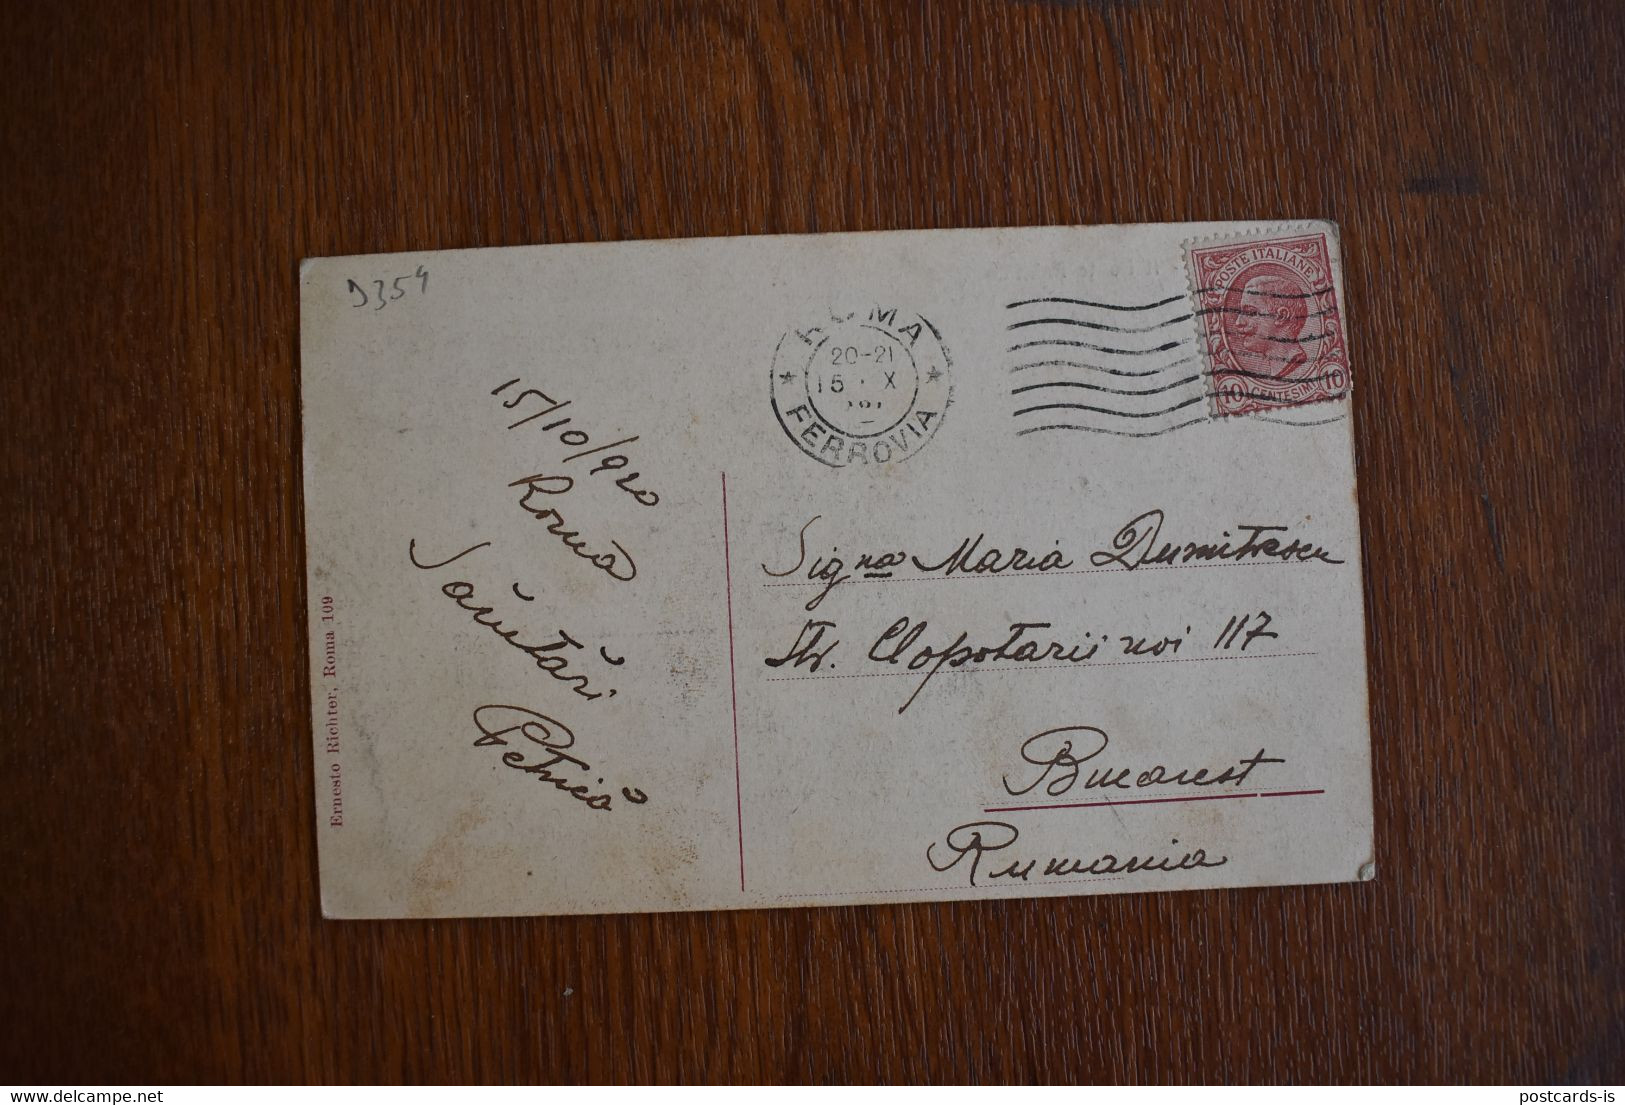 D354
ROMA
20-21
15 . X
FERROVIA
POSTE ITALIANE
10 CENTESIMI 10
15/10/920
Roma
Sărutări
Signa Maria Dumitrescu
Str. Clopotarii noi 117
Bucarest
Rumania
Ernesto Richter, Roma 109
delcampe.net
postcards-is